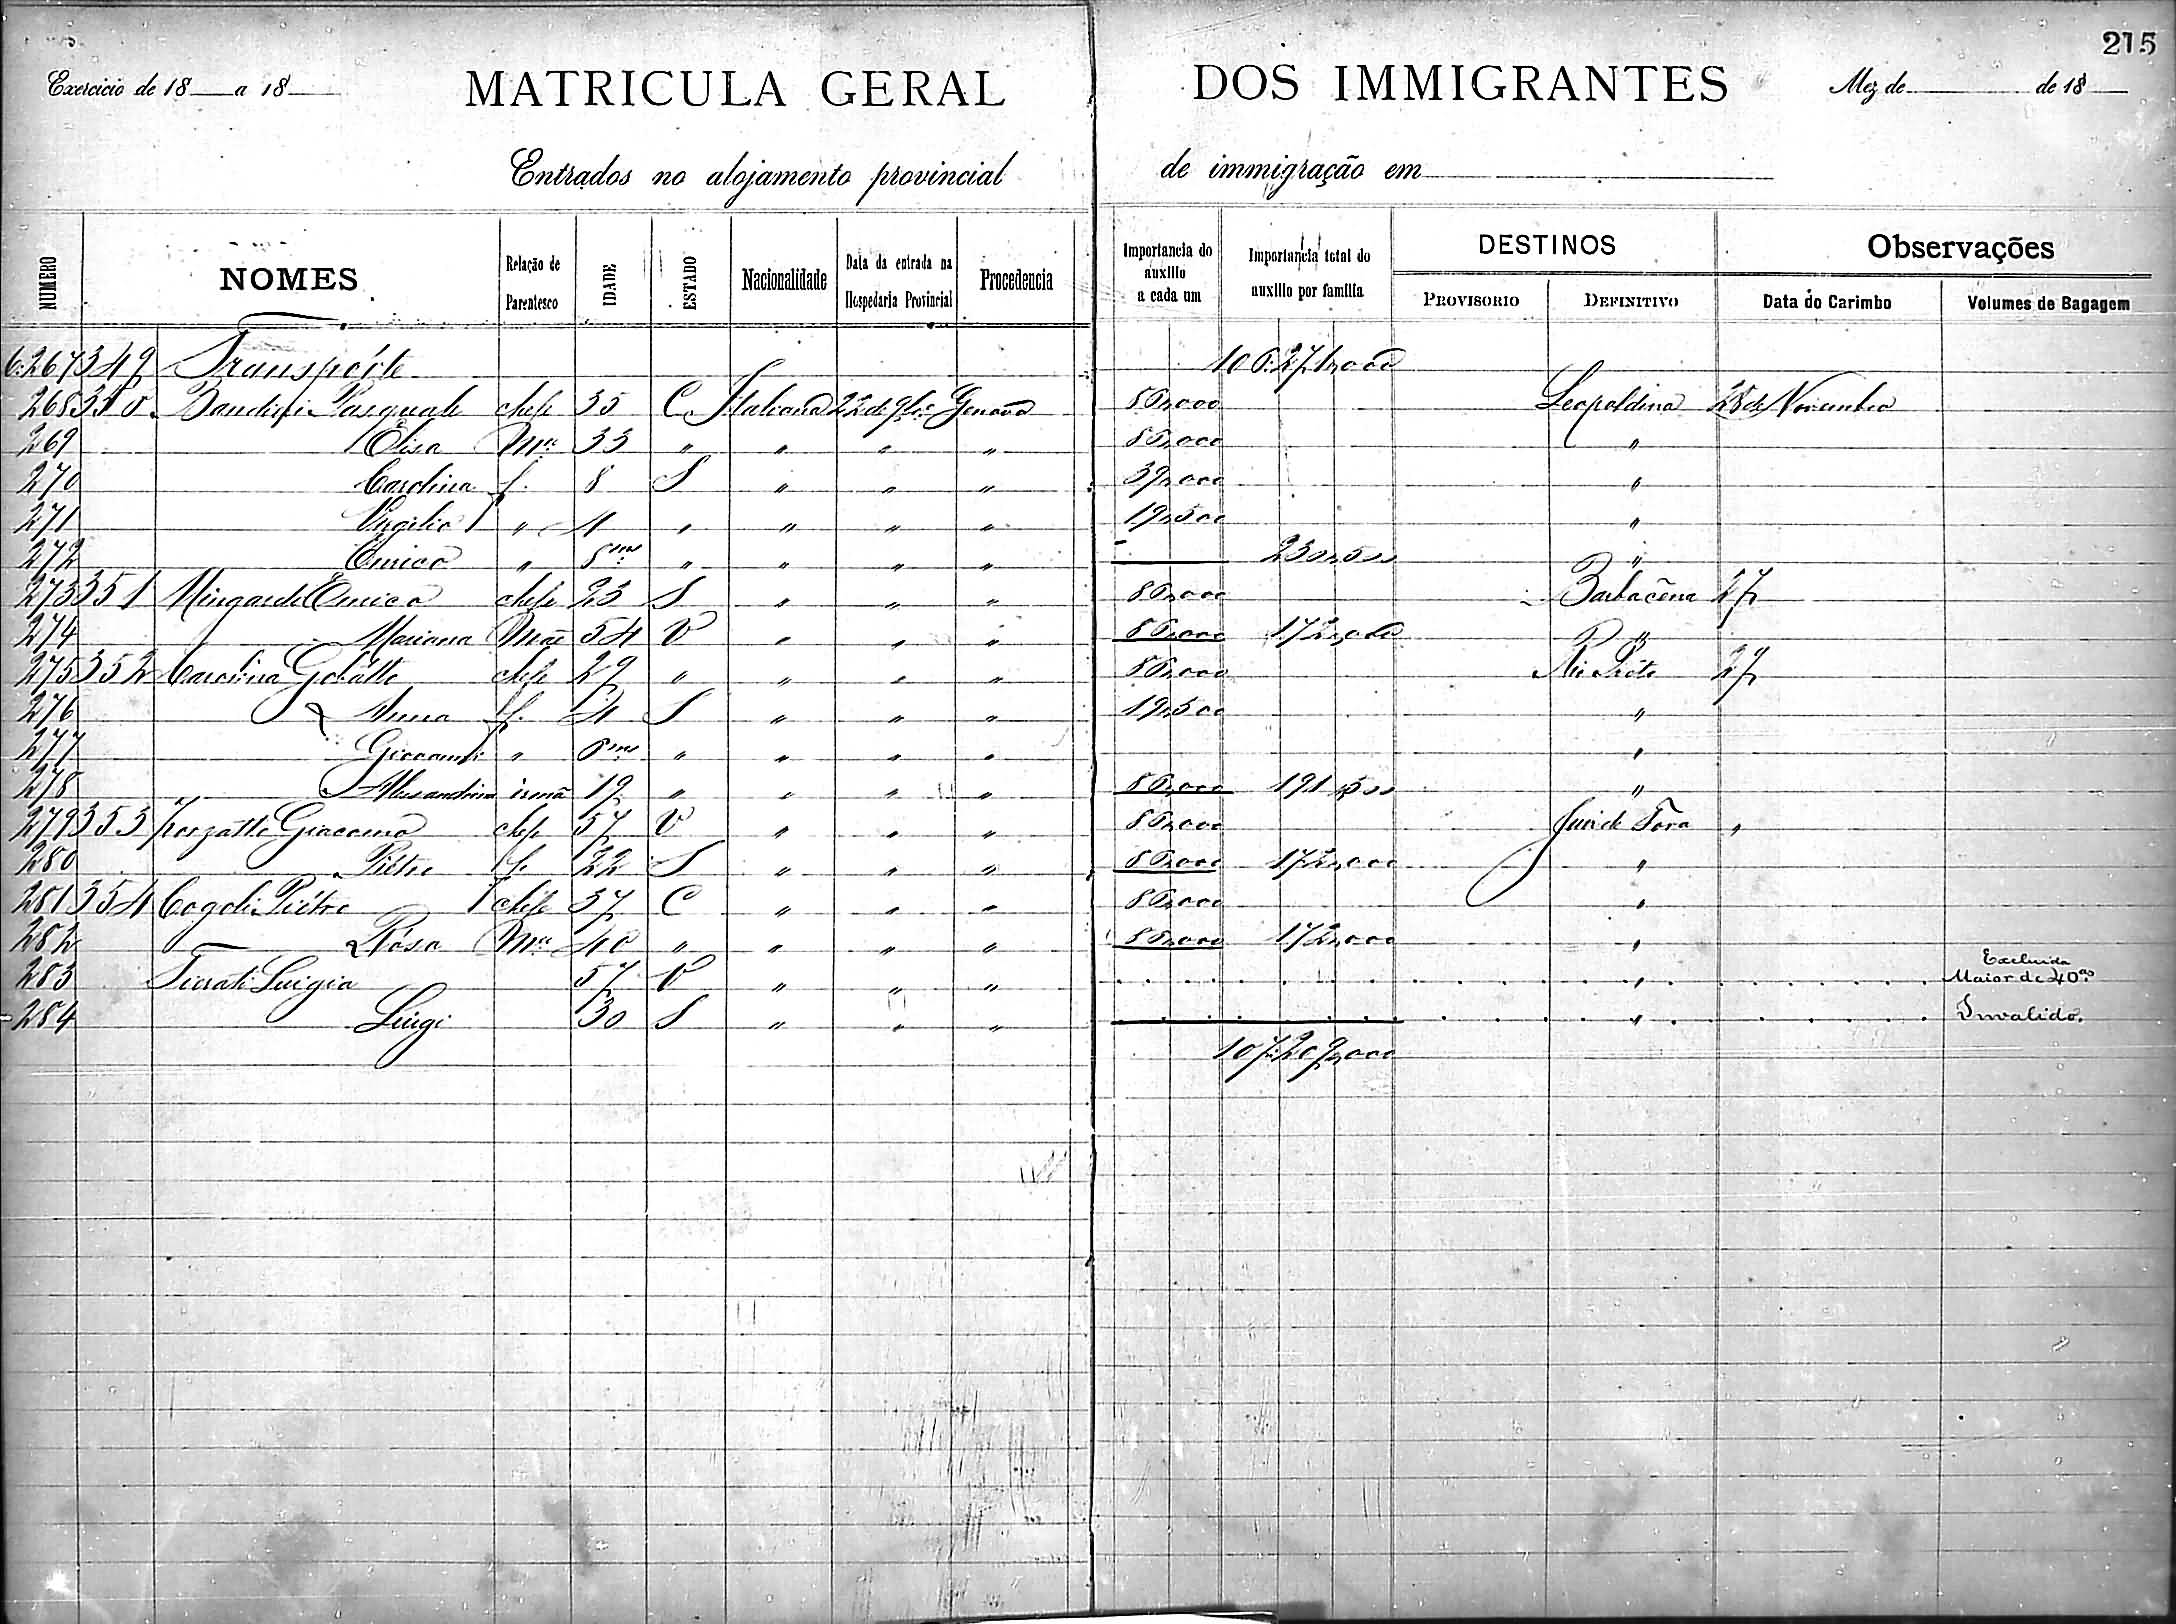 215
Exercicio de 18 a 18 MATRICULA GERAL DOS IMMIGRANTES Mez de de 18
Entrados no alojamento provincial de immigração em
NUMERO NOMES Relação de Parentesco IDADE ESTADO Nacionalidade Data da entrada na Hospedaria Provincial Procedencia Importancia do auxilio a cada um Importancia total do auxilio por familia DESTINOS PROVISORIO DEFINITIVO Observações Data do Carimbo Volumes de Bagagem
6.267 349 Transporte 106:271,000
268 350 Pasquale chefe 35 C Italiana 22 de 9bro Genova 86,000 Leopoldina 28 de Novembro
269 Elisa Mer 33 " " " " 86,000 "
270 Carolina f. 8 S " " " 39,000 "
271 Virgilio " 4 " " " " 19,500 "
272 Enrico " 8 mes " " " " 230,500 "
273 351 Mingardi Enrico chefe 23 S " " " 86,000 Barbacena 27
274 Mariana Mãe 54 V " " " 86,000 172,000 "
275 352 Carolina chefe 29 " " " " 86,000 Rio Preto 27
276 Anna f. 4 S " " " 19,500 "
277 Giovanni " 8 mes " " " " "
278 Alessandrina irmã 19 " " " " 86,000 191,500 "
279 353 Giacomo chefe 57 V " " " 86,000 Juiz de Fora "
280 Pietro f. 22 S " " " 86,000 172,000 "
281 354 Cogoli Pietro chefe 37 C " " " 86,000 "
282 Rosa Mer 40 " " " " 86,000 172,000 "
283 Luigia 57 V " " " " Excluida Maior de 40 as
284 Luigi 30 S " " " " Invalido.
107:209,000